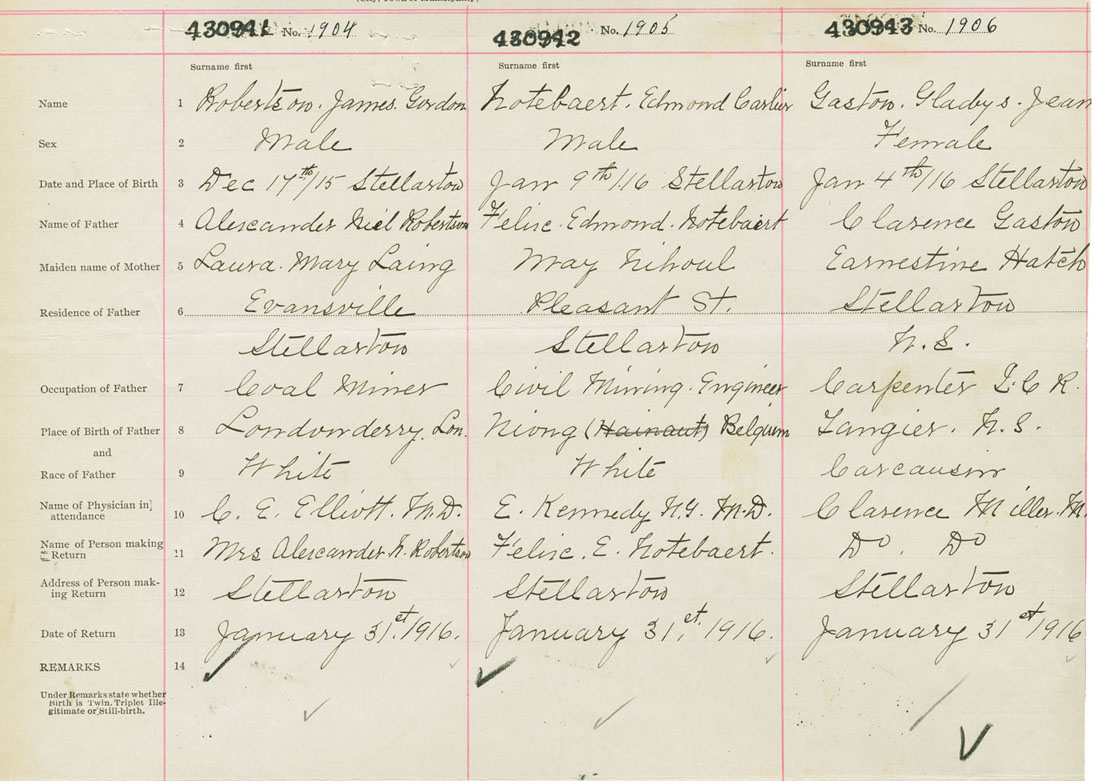 430941 No. 1904
430942 No. 1905
430943 No. 1906
Surname first Surname first Surname first
Name 1 Robertson. James. Gordon Notebaert. Edmond Carlier Gaston. Gladys. Jean
Sex 2 Male Male Female
Date and Place of Birth 3 Dec 17th/15 Stellarton Jan 9th/16 Stellarton Jan 4th/16 Stellarton
Name of Father 4 Alexander Niel Robertson Felix. Edmond. Notebaert Clarence Gaston
Maiden name of Mother 5 Laura. Mary Laing May Nihoul Earnestine Hatch
Residence of Father 6 Evansville Pleasant St. Stellarton
Stellarton Stellarton N.S.
Occupation of Father 7 Coal Miner Civil Mining. Engineer Carpenter I.C R.
Place of Birth of Father 8 Londonderry, Lon. (Hainaut) Belgium Tangier. N.S.
and
Race of Father 9 White White Carcausin
Name of Physician in] attendance 10 C. E. Elliott. M.D. E. Kennedy N.G. M.D. Clarence Miller. M.
Name of Person making Return 11 Mrs Alexander. N. Robertson Felix. E. Notebaert. Do Do
Address of Person mak-
ing Return 12 Stellarton Stellarton Stellarton
Date of Return 13 January 31st. 1916. January 31st. 1916. January 31st 1916
REMARKS 14
Under Remarks state whether
Birth is Twin. Triplet Ille-
gitimate or Still-birth.